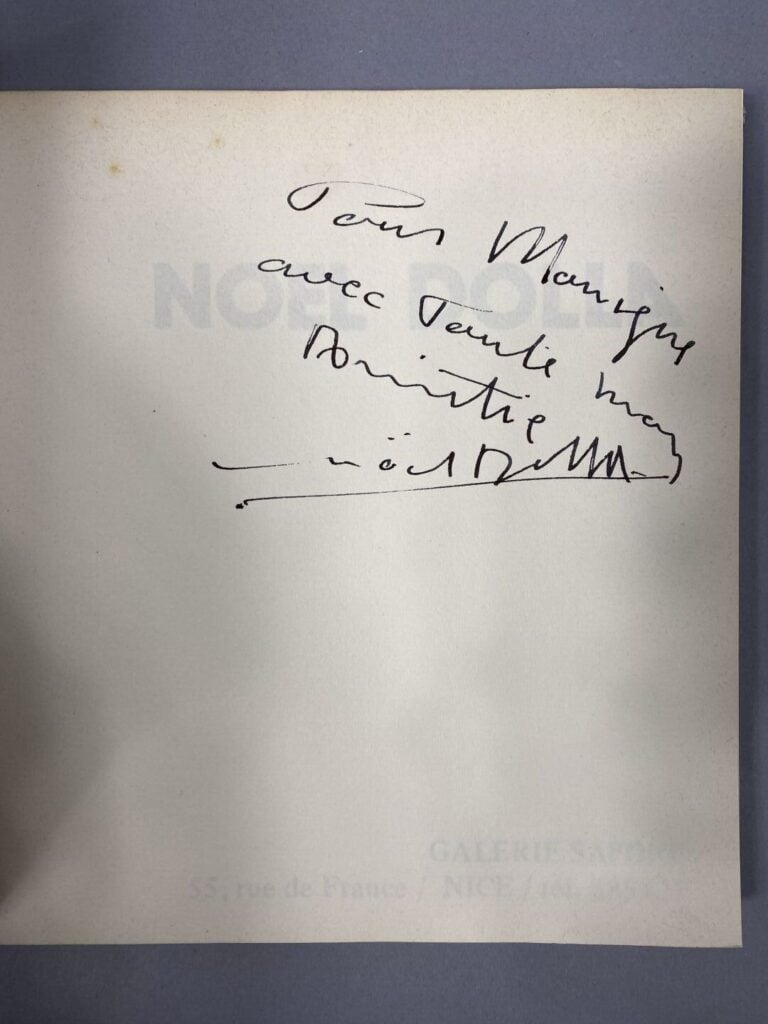 Pour Monique
avec toute mon
Amitié
Noël Dolla
NOËL DOLLA
GALERIE SAPONE
55, rue de France / NICE / tél.